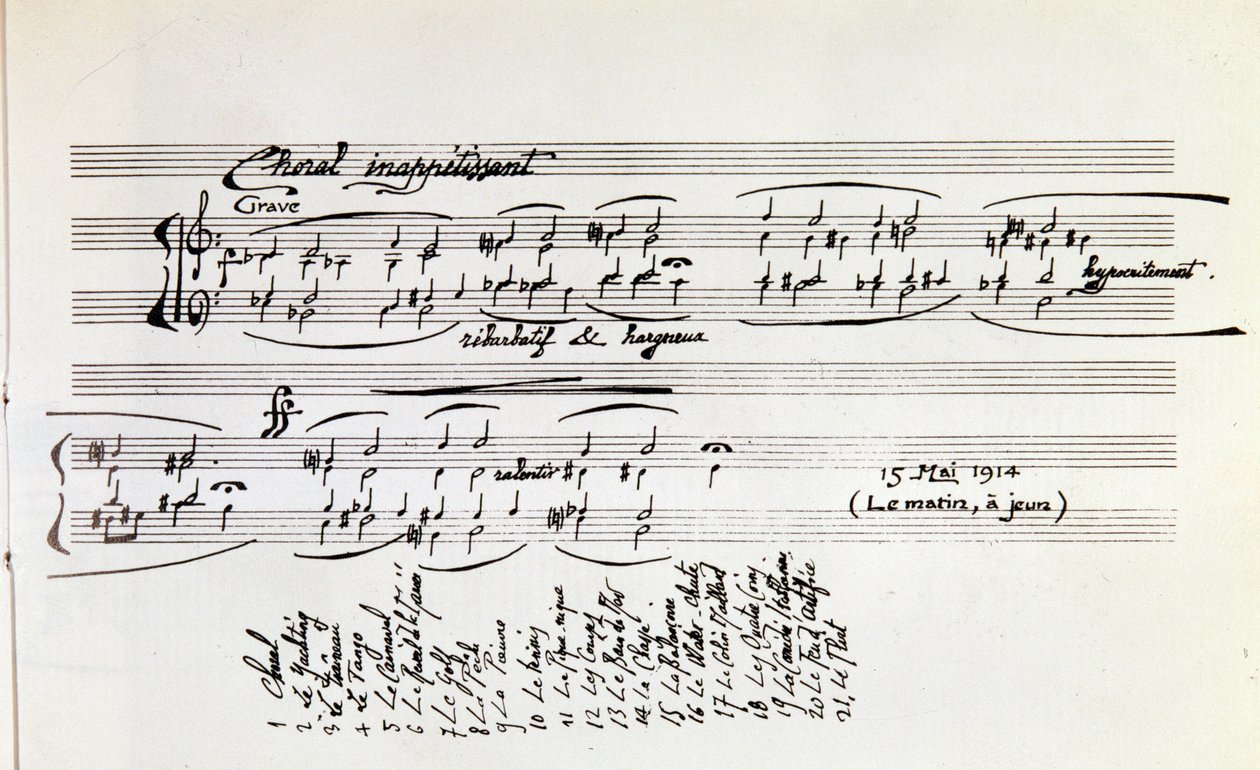 Choral inappétissant
Grave
f
hypocritement.
rébarbatif & hargneux
ff
ralentir
15 Mai 1914
(Le matin, à jeun)
1 Choral
2 Le Yachting
3 Le Traineau
4 Le Tango
5 Le Carnaval
6 Le Réveil de la
7 Le Golf
8 La Pêche
9 La
10 Le Tennis
11 Le Pique-nique
12 Les Courses
13 Le Bain de Mer
14 La Chasse
15 La Balançoire
16 Le Water-chute
17 Le Colin Maillard
18 Les Quatre Coins
19 La Comédie Italienne
20 Le Feu d'Artifice
21. Le Flirt